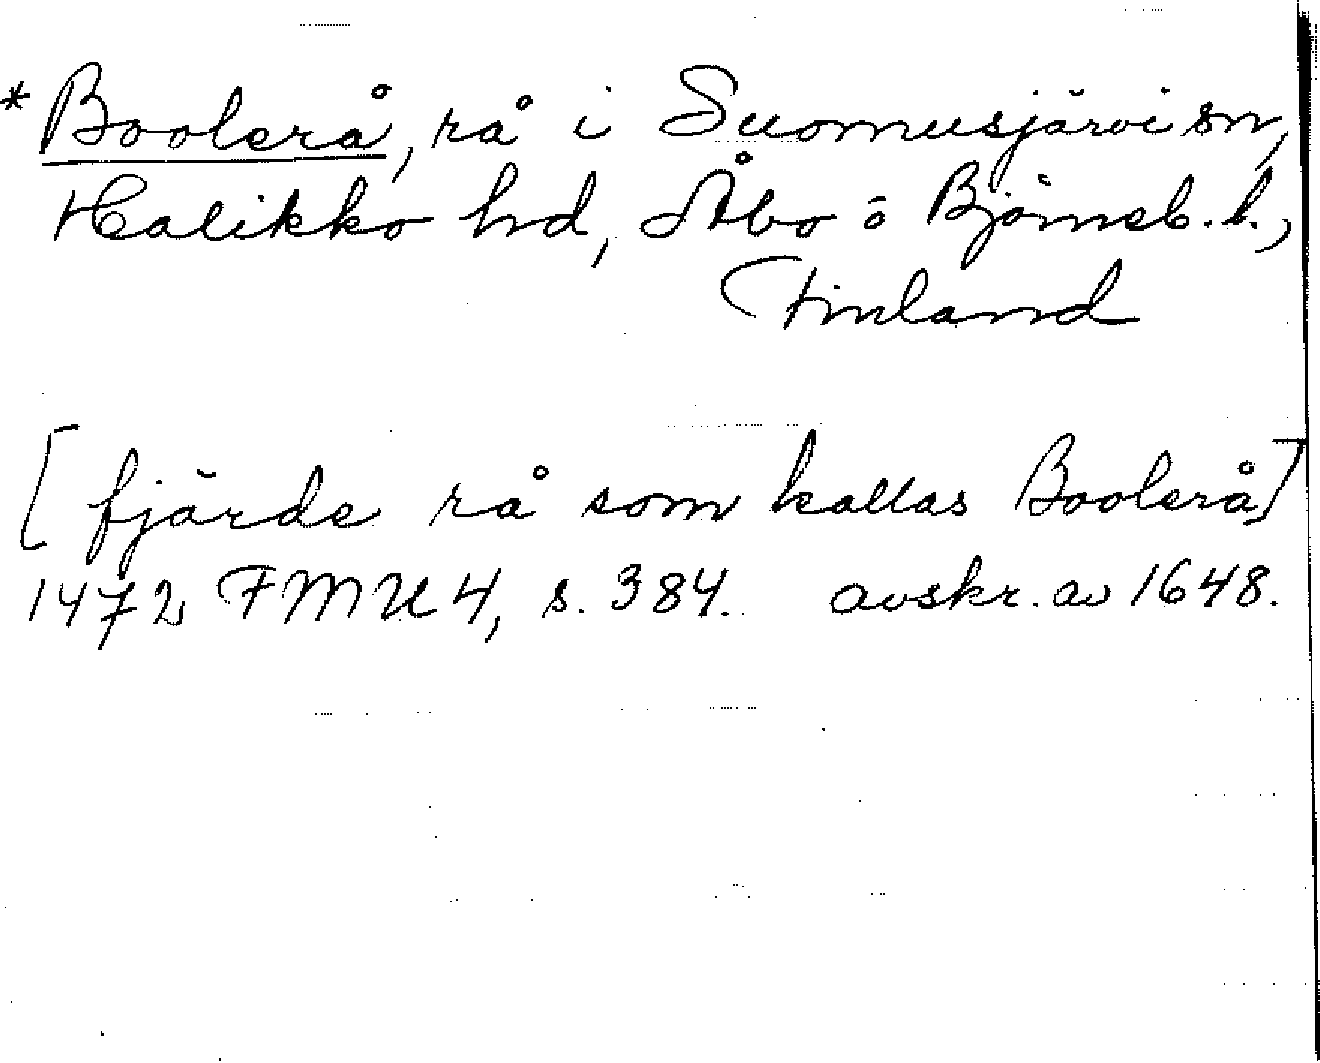 *Boolerå, rå i Suomusjärvi sn,
Halikko hd, Åbo ö Björneb. l.,
Finland
[fjärde rå som kallas Boolerå]
1472 FMU 4, s. 384. avskr. av 1648.